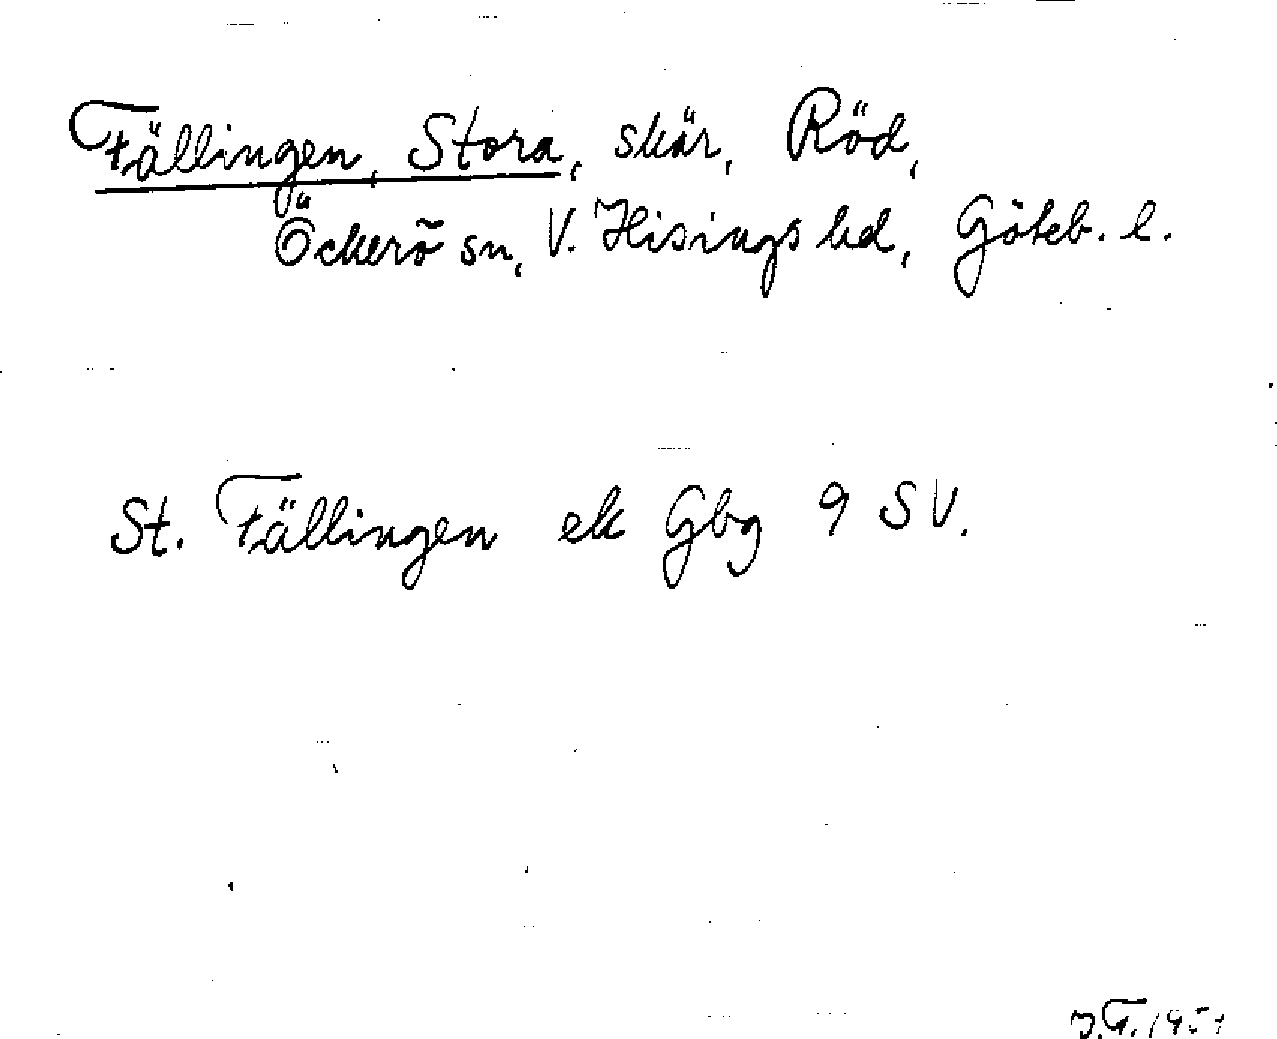 Fällingen, Stora, skär, Röd,
Öckerö sn, V. Hisings hd, Göteb. l.
St. Fällingen ek Gbg 9 SV.
J.F. 1951